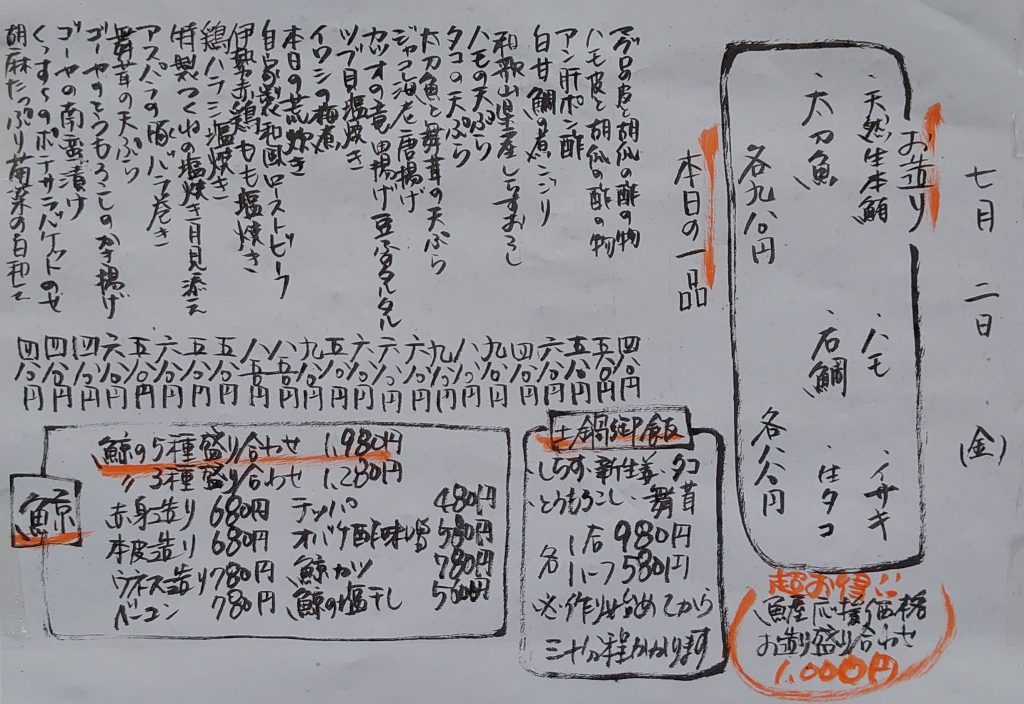 七月二日(金)
お造り
・天然生本鮪
・ハモ
・イサキ
・太刀魚
・石鯛
・生タコ
各九八〇円
各八八〇円
超お得!!
魚屋応援価格
お造り盛り合わせ
1,000円
本日の一品
マグロの皮と胡瓜の酢の物 四八〇円
ハモ皮と胡瓜の酢の物 五八〇円
アン肝ポン酢 五八〇円
白甘鯛の煮こごり 六八〇円
和歌山県産しらすおろし 四八〇円
ハモの天ぷら 九八〇円
タコの天ぷら 八八〇円
太刀魚と舞茸の天ぷら 九八〇円
ジャコ海老唐揚げ 六八〇円
カツオの竜田揚げ豆ふタルタル 六八〇円
ツブ貝塩焼き 六八〇円
イワシの梅煮 五八〇円
本日の荒炊き 九八〇円
自家製和風ローストビーフ
伊勢赤鶏もも塩焼き
鶏ハラミ塩焼き 五八〇円
特製つくねの塩焼き月見添え 五八〇円
アスパラの豚バラ巻き 六八〇円
舞茸の天ぷら 五八〇円
ゴーヤのとうもろこしのかき揚げ 六八〇円
ゴーヤの南蛮漬け 四八〇円
くっすんのポテサラバケットのせ 四八〇円
胡麻たっぷり菊菜の白和え 四八〇円
土鍋御飯
・しらす・新生姜・タコ
・とうもろこし・舞茸
各 1合 980円
ハーフ 580円
※作り始めてから
三十分程かかります
鯨
鯨の5種盛り合わせ 1,980円
〃3種盛り合わせ 1,280円
赤身造り 680円
本皮造り 680円
ウネス造り 780円
ベーコン 780円
テッパ 480円
オバケ酢味噌 580円
鯨カツ 780円
鯨の塩干し 500円